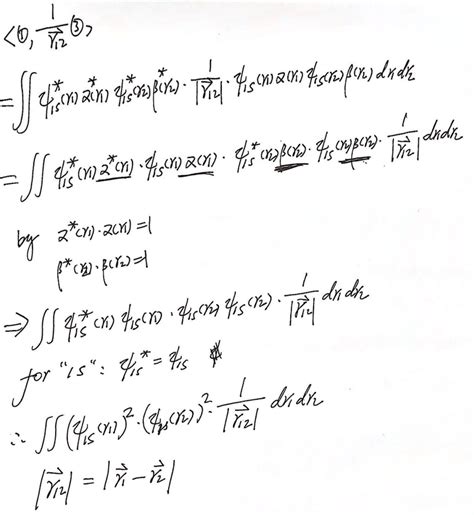 <①, 1/r⃗₁₂ ③>
= ∬ ψ₁ₛ*(r₁) α*(r₁) ψ₁ₛ*(r₂) β*(r₂) · 1/|r⃗₁₂| · ψ₁ₛ(r₁) α(r₁) ψ₁ₛ(r₂) β(r₂) dr₁ dr₂
= ∬ ψ₁ₛ*(r₁) α*(r₁) · ψ₁ₛ(r₁) α(r₁) · ψ₁ₛ*(r₂) β(r₂) · ψ₁ₛ(r₂) β(r₂) · 1/|r⃗₁₂| dr₁ dr₂
by α*(r₁) · α(r₁) = 1
β*(r₂) · β(r₂) = 1
⇒ ∬ ψ₁ₛ*(r₁) ψ₁ₛ(r₁) · ψ₁ₛ(r₂) ψ₁ₛ(r₂) · 1/|r⃗₁₂| dr₁ dr₂
for "1s": ψ₁ₛ* = ψ₁ₛ
∴ ∬ (ψ₁ₛ(r₁))² · (ψ₁ₛ(r₂))² · 1/|r⃗₁₂| dr₁ dr₂
|r⃗₁₂| = |r⃗₁ − r⃗₂|